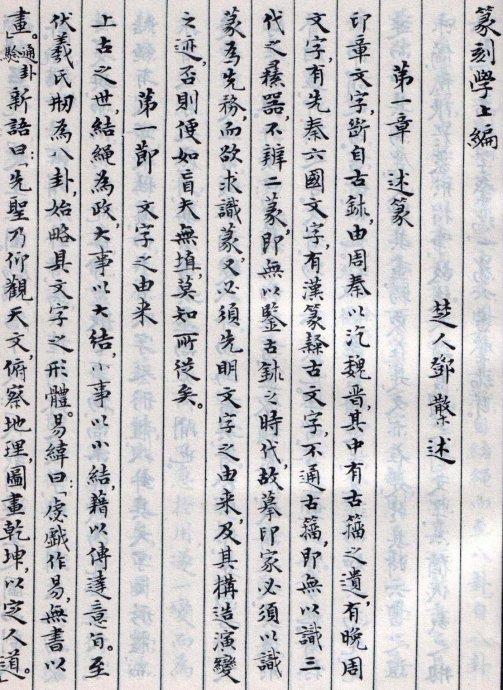 篆刻學上編
楚人鄧散述
第一章　述篆
印章文字，斷自古鉢，由周秦以汔魏晋，其中有古籀之遺，有晚周
文字，有先秦六國文字，有漢篆繇古文字，不通古籀，即無以識三
代之彞器，不辨二篆，即無以鑒古鉢之時代，故摹印家必須以識
篆爲先務，而欲求識篆，又必須先明文字之由来，及其構造演變
之迹，否則便如盲夫無埴，莫知所從矣。
第一節　文字之由来
上古之世，結繩為政，大事以大結，小事以小結，藉以傳達意旨。至
伏羲氏刱為八卦，始略具文字之形體。易緯曰：「虙戲作易，無書以
畫。」通卦驗新語曰：「先聖乃仰觀天文，俯察地理，圖畫乾坤，以定人道。」